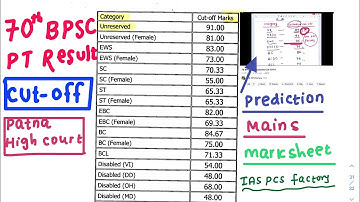 70th BPSC
PT Result
cut-off
Patna
High court
Category Cut-off Marks
Unreserved 91.00
Unreserved (Female) 81.00
EWS 83.00
EWS (Female) 73.00
SC 70.33
SC (Female) 55.00
ST 65.33
ST (Female) 65.33
EBC 82.00
EBC (Female) 69.33
BC 84.67
BC (Female) 75.00
BCL 71.33
Disabled (VI) 54.00
Disabled (DD) 48.00
Disabled (OH) 68.00
Disabled (MD) 48.00
prediction
Mains
marksheet
IAS PCS factory